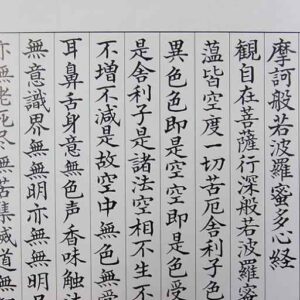 摩訶般若波羅蜜多心経
観自在菩薩行深般若波羅蜜
薀皆空度一切苦厄舎利子色
異色色即是空空即是色受
是舎利子是諸法空相不生不
不増不減是故空中無色無受
耳鼻舌身意無色声香味触法
無意識界無無明亦無無明
亦無老死尽無苦集滅道無